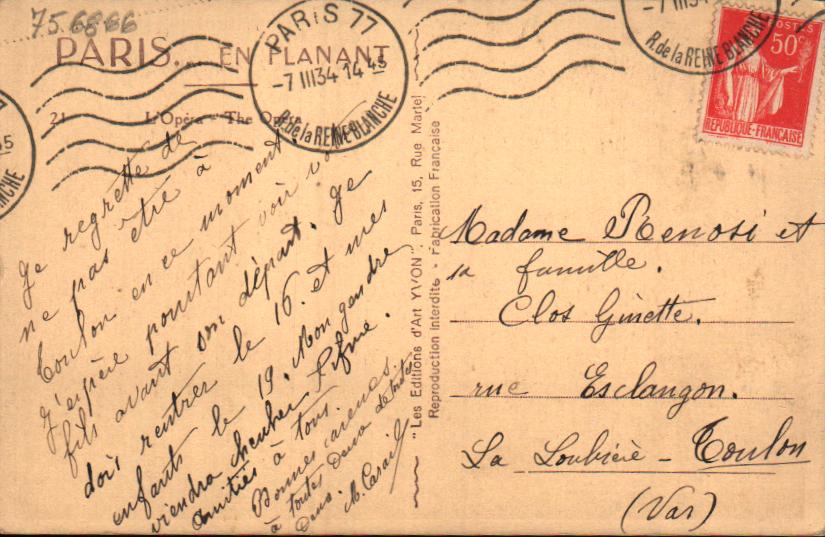 756866
PARIS... EN FLANANT
21 L'Opéra - The Opera
PARIS 77
-7 III 34 14 45
R. de la REINE BLANCHE
-7 III 34
R. de la REINE BLANCHE
45
BLANCHE
POSTES
50c
REPUBLIQUE-FRANÇAISE
Je regrette de
ne pas être à
Toulon en ce moment
J'espère pourtant voir votre
fils avant son départ. Je
dois rentrer le 16 et mes
enfants le 19. Mon gendre
viendra chercher
Amitiés à tous.
Bonnes caresses
à toutes deux de toutes
deux.
M.
"Les Editions d'Art YVON", Paris, 15, Rue Martel
Reproduction Interdite - Fabrication Française
Madame Renosi et
sa famille.
Clos Ginette.
rue Esclangon.
La Loubière - Toulon
(Var)